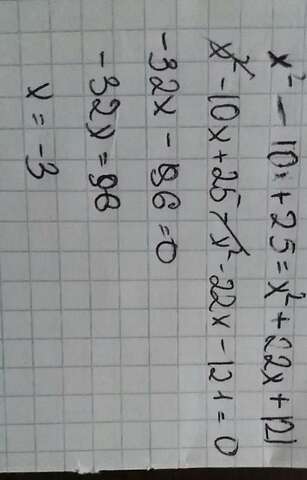 x² - 10x + 25 = x² + 22x + 121
x² - 10x + 25 - x² - 22x - 121 = 0
-32x - 96 = 0
-32x = 96
x = -3